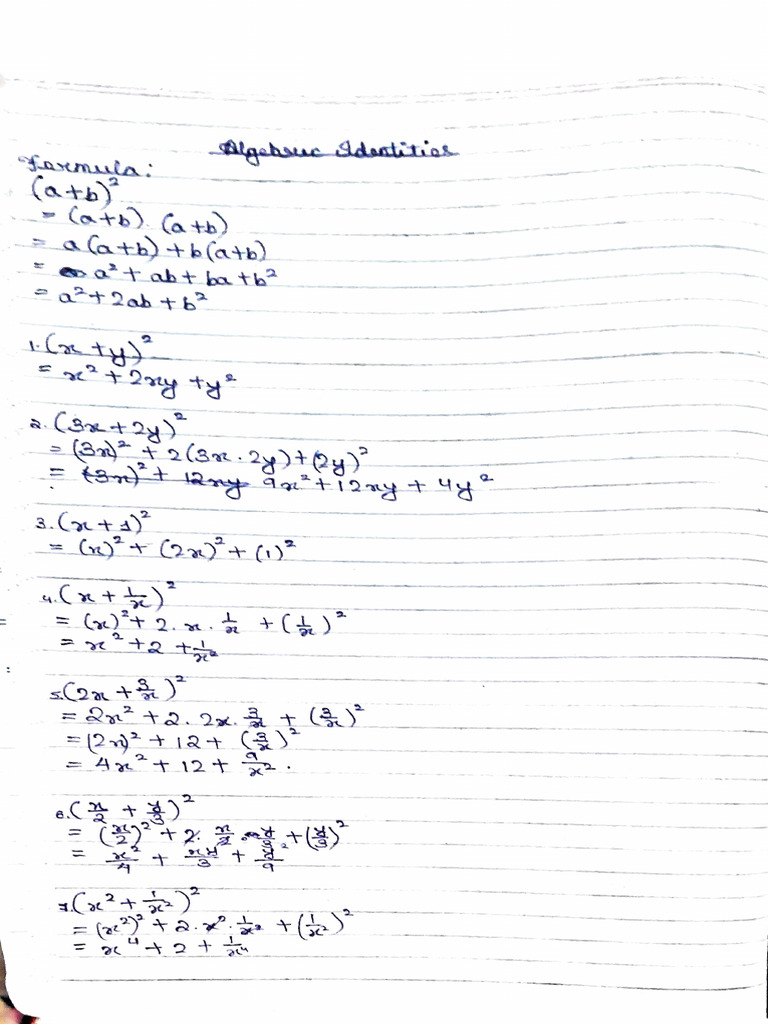 Algebraic Identities
Formula:
(a+b)²
= (a+b) (a+b)
= a(a+b) + b(a+b)
= a² + ab + ba + b²
= a² + 2ab + b²
1. (x + y)²
= x² + 2xy + y²
2. (3x + 2y)²
= (3x)² + 2(3x · 2y) + (2y)²
= (3x)² + 12xy 9x² + 12xy + 4y²
3. (x + 1)²
= (x)² + (2x)² + (1)²
4. (x + 1/x)²
= (x)² + 2 · x · 1/x + (1/x)²
= x² + 2 + 1/x²
5. (2x + 3/x)²
= 2x² + 2 · 2x · 3/x + (3/x)²
= (2x)² + 12 + (3/x)²
= 4x² + 12 + 9/x² .
6. (x/2 + y/3)²
= (x/2)² + 2 · x/2 · y/3 + (y/3)²
= x²/4 + xy/3 + y²/9
7. (x² + 1/x²)²
= (x²)² + 2 · x² · 1/x² + (1/x²)²
= x⁴ + 2 + 1/x⁴